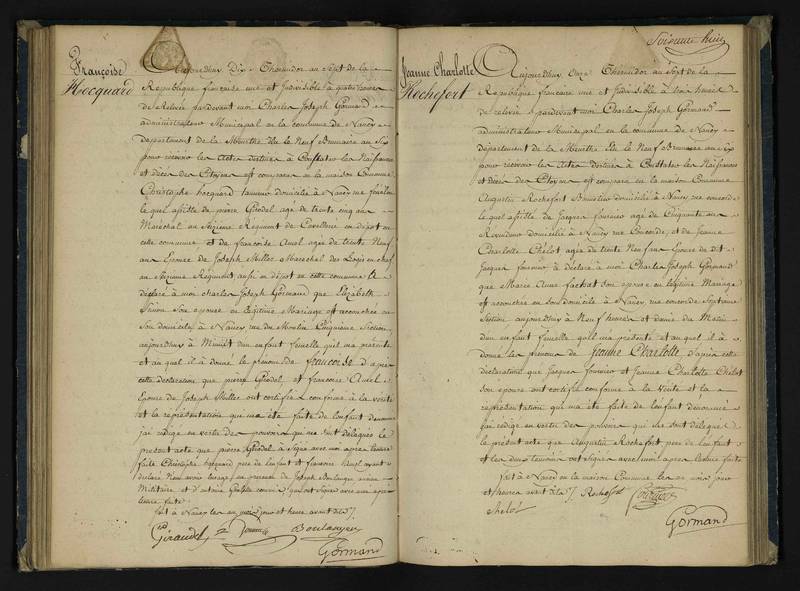 Françoise
Hocquard
Aujourdhuy Dix Thermidor an Sept de la
République française une et Indivisible à quatre heures
de Relevée pardevant moi Charles Joseph Gormand
administrateur Municipal de la commune de Nancy
département de la Meurthe Elu le Neuf Brumaire an Six
pour recevoir les Actes destinés à Constater les Naissances
et décès des Citoyens est comparu en la maison Commune
Christophe hocquard domicilié à Nancy rue
lequel assisté de pierre Girodel agé de trente cinq ans
Marechal au Sizieme Regiment de Cavallerie en dépot en
cette commune et de francoise Auel agée de trente Neuf
ans Epouse de Joseph Muller Marechal des Logis en chef
au Sizieme Régiment aussi en dépot en cette commune à
déclaré à moi charles Joseph Gormand que Elizabeth
Simon Son épouse en légitime Mariage est accouchée en
Son domicile à Nancy rue du Moulin Cinquieme Section
aujourdhuy à Minuit d'un enfant femelle qu'il m'a présenté
et auquel il à donné le prénom de francoise d'après
cette déclaration que pierre Girodel et francoise Auel
Epouse de Joseph Muller ont certifiée conforme à la vérité
et la représentation qui m'a été faite de l'enfant dénommé
j'ai rédigé en vertu des pouvoirs qui me sont délégués le
présent acte que pierre Girodel à Signé avec moi après lecture
faite Christophe hocquard père de l'enfant et francoise Auel ayant
déclaré Navoir en présence de Joseph Boulanger
Militaire et d'antoine qui ont Signé avec moi après
lecture faite
fait à Nancy les an mois jour et heure avant dits
Giraudel
Boulanger
Gormand
Soixante huit
Jeanne Charlotte
Rochefort
Aujourdhuy onze Thermidor an Sept de la
République francaise une et Indivisible à trois heures
de relevée pardevant moi Charles Joseph Gormand
administrateur Municipal en la commune de Nancy
département de la Meurthe Elu le Neuf Brumaire an Six
pour recevoir les Actes destinés à Constater les Naissances
et Décès des Citoyens est comparu en la maison Commune
Augustin Rochefort domicilié à Nancy rue concorde
lequel assisté de Jacques fournier agé de Cinquante ans
domicilié à Nancy rue Concorde, et de Jeanne
Charlotte Chelot agée de trente Neuf ans Epouse dudit
Jacques fournier à déclaré à moi Charles Joseph Gormand
que Marie Anne fachot son épouse en legitime Mariage
est accouchée en son domicile à Nancy rue concorde Septieme
Section aujourdhuy à Neuf heures et demie du Matin
d'un enfant femelle qu'il m'a présenté et auquel il à
donné les prénoms de Jeanne Charlotte, d'après cette
déclaration que Jacques fournier et Jeanne Charlotte Chelot
Son épouse ont certifiée conforme à la Vérité et la
représentation qui m'a été faite de l'enfant dénommé
j'ai rédigé en vertu des pouvoirs qui me sont délégués
le présent acte que Augustin Rochefort père de l'enfant
et les deux témoins ont Signé avec moi après lecture faite
fait à Nancy en la maison Commune les an mois jour
et heures avant dits Rochefort
chelot
fournier
Gormand